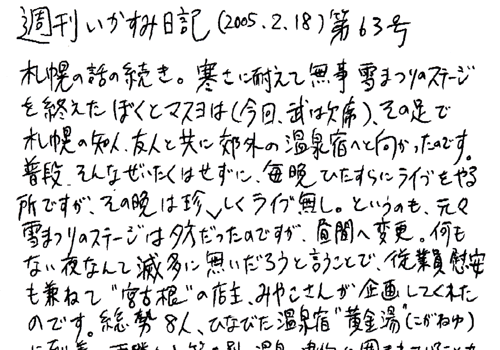 週刊いかすみ日記(2005.2.18)第63号
札幌の話の続き。寒さに耐えて無事雪まつりのステージ
を終えたぼくとマスヨは(今回、武は欠席)、その足で
札幌の知人、友人と共に郊外の温泉宿へと向かったのです。
普段、そんなぜいたくはせずに、毎晩ひたすらにライブをやる
所ですが、その晩は珍しくライブ無し。というのも、元々
雪まつりのステージは夕方だったのですが、昼間へ変更。何も
ない夜なんて滅多に無いだろうと言うことで、従業員慰安
も兼ねて"宮古根"の店主、みやこさんが企画してくれた
のです。総勢8人、ひなびた温泉宿"黄金湯"(こがねゆ)